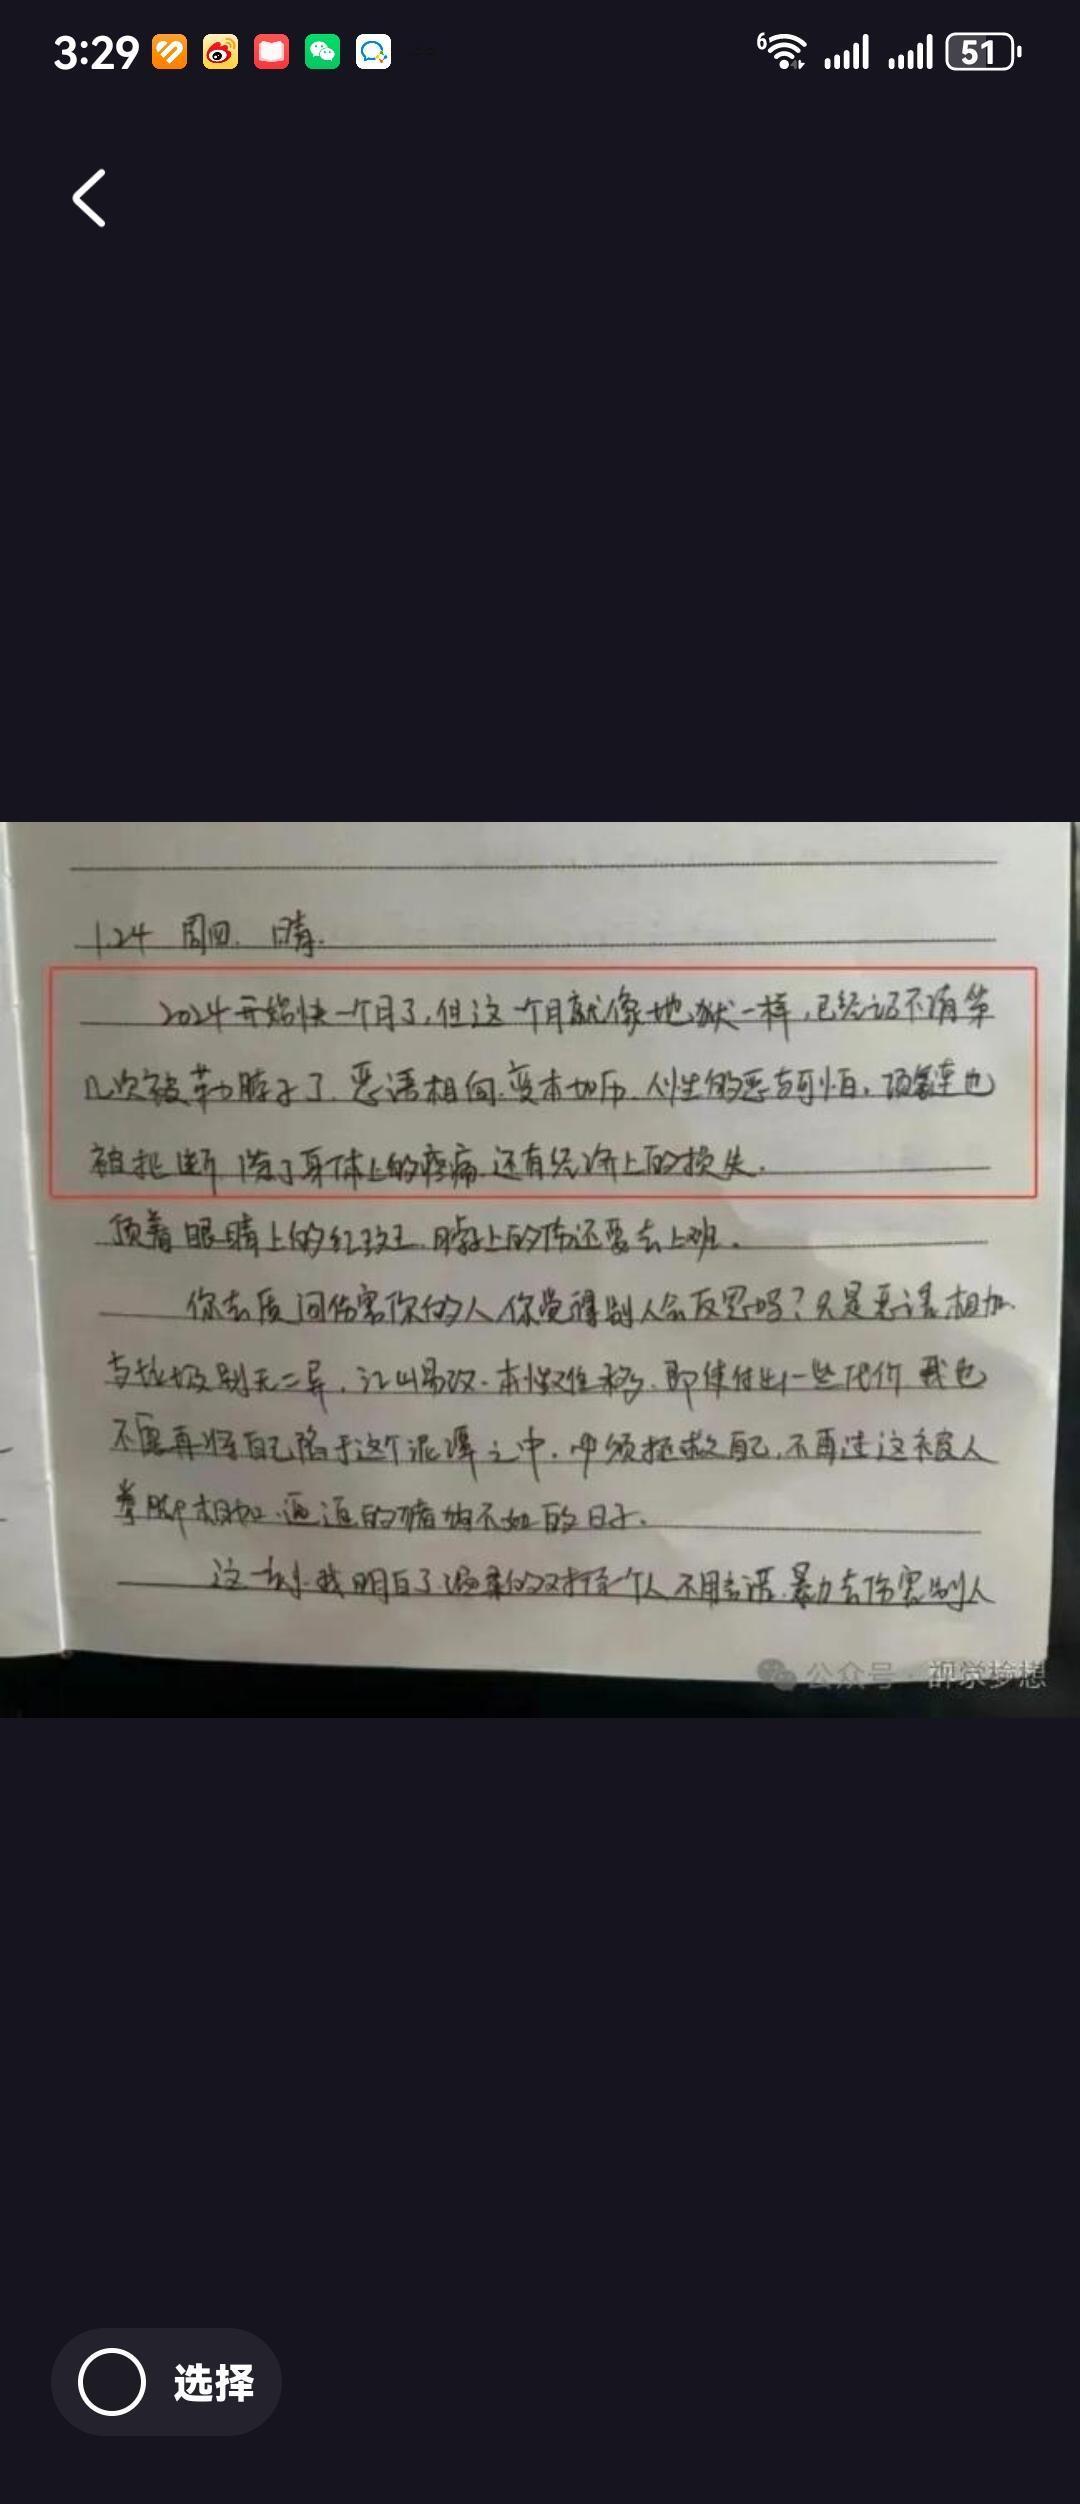 3:29
6
51
1.24 周四. 晴.
2024开始快一个月了,但这一个月就像地狱一样,已经记不清第
几次被勒脖子了.恶语相向.变本加厉.人性的恶与可怕.项链也
被扯断 除了身体上的疼痛.还有经济上的损失.
顶着眼睛上的红 脖子上的伤还要去上班.
你去质问伤害你的人,你觉得别人会反思吗?只是恶语相加.
与垃圾别无二异.江山易改.本性难移.即使付出一些代价 我也
不要再将自己陷于这个泥潭之中. 须拯救自己,不再过这被人
拳脚相加. 的猪狗不如的日子.
这一刻.我明白了温柔的对待一个人 不用言语.暴力去伤害别人
公众号·视觉梦想
选择